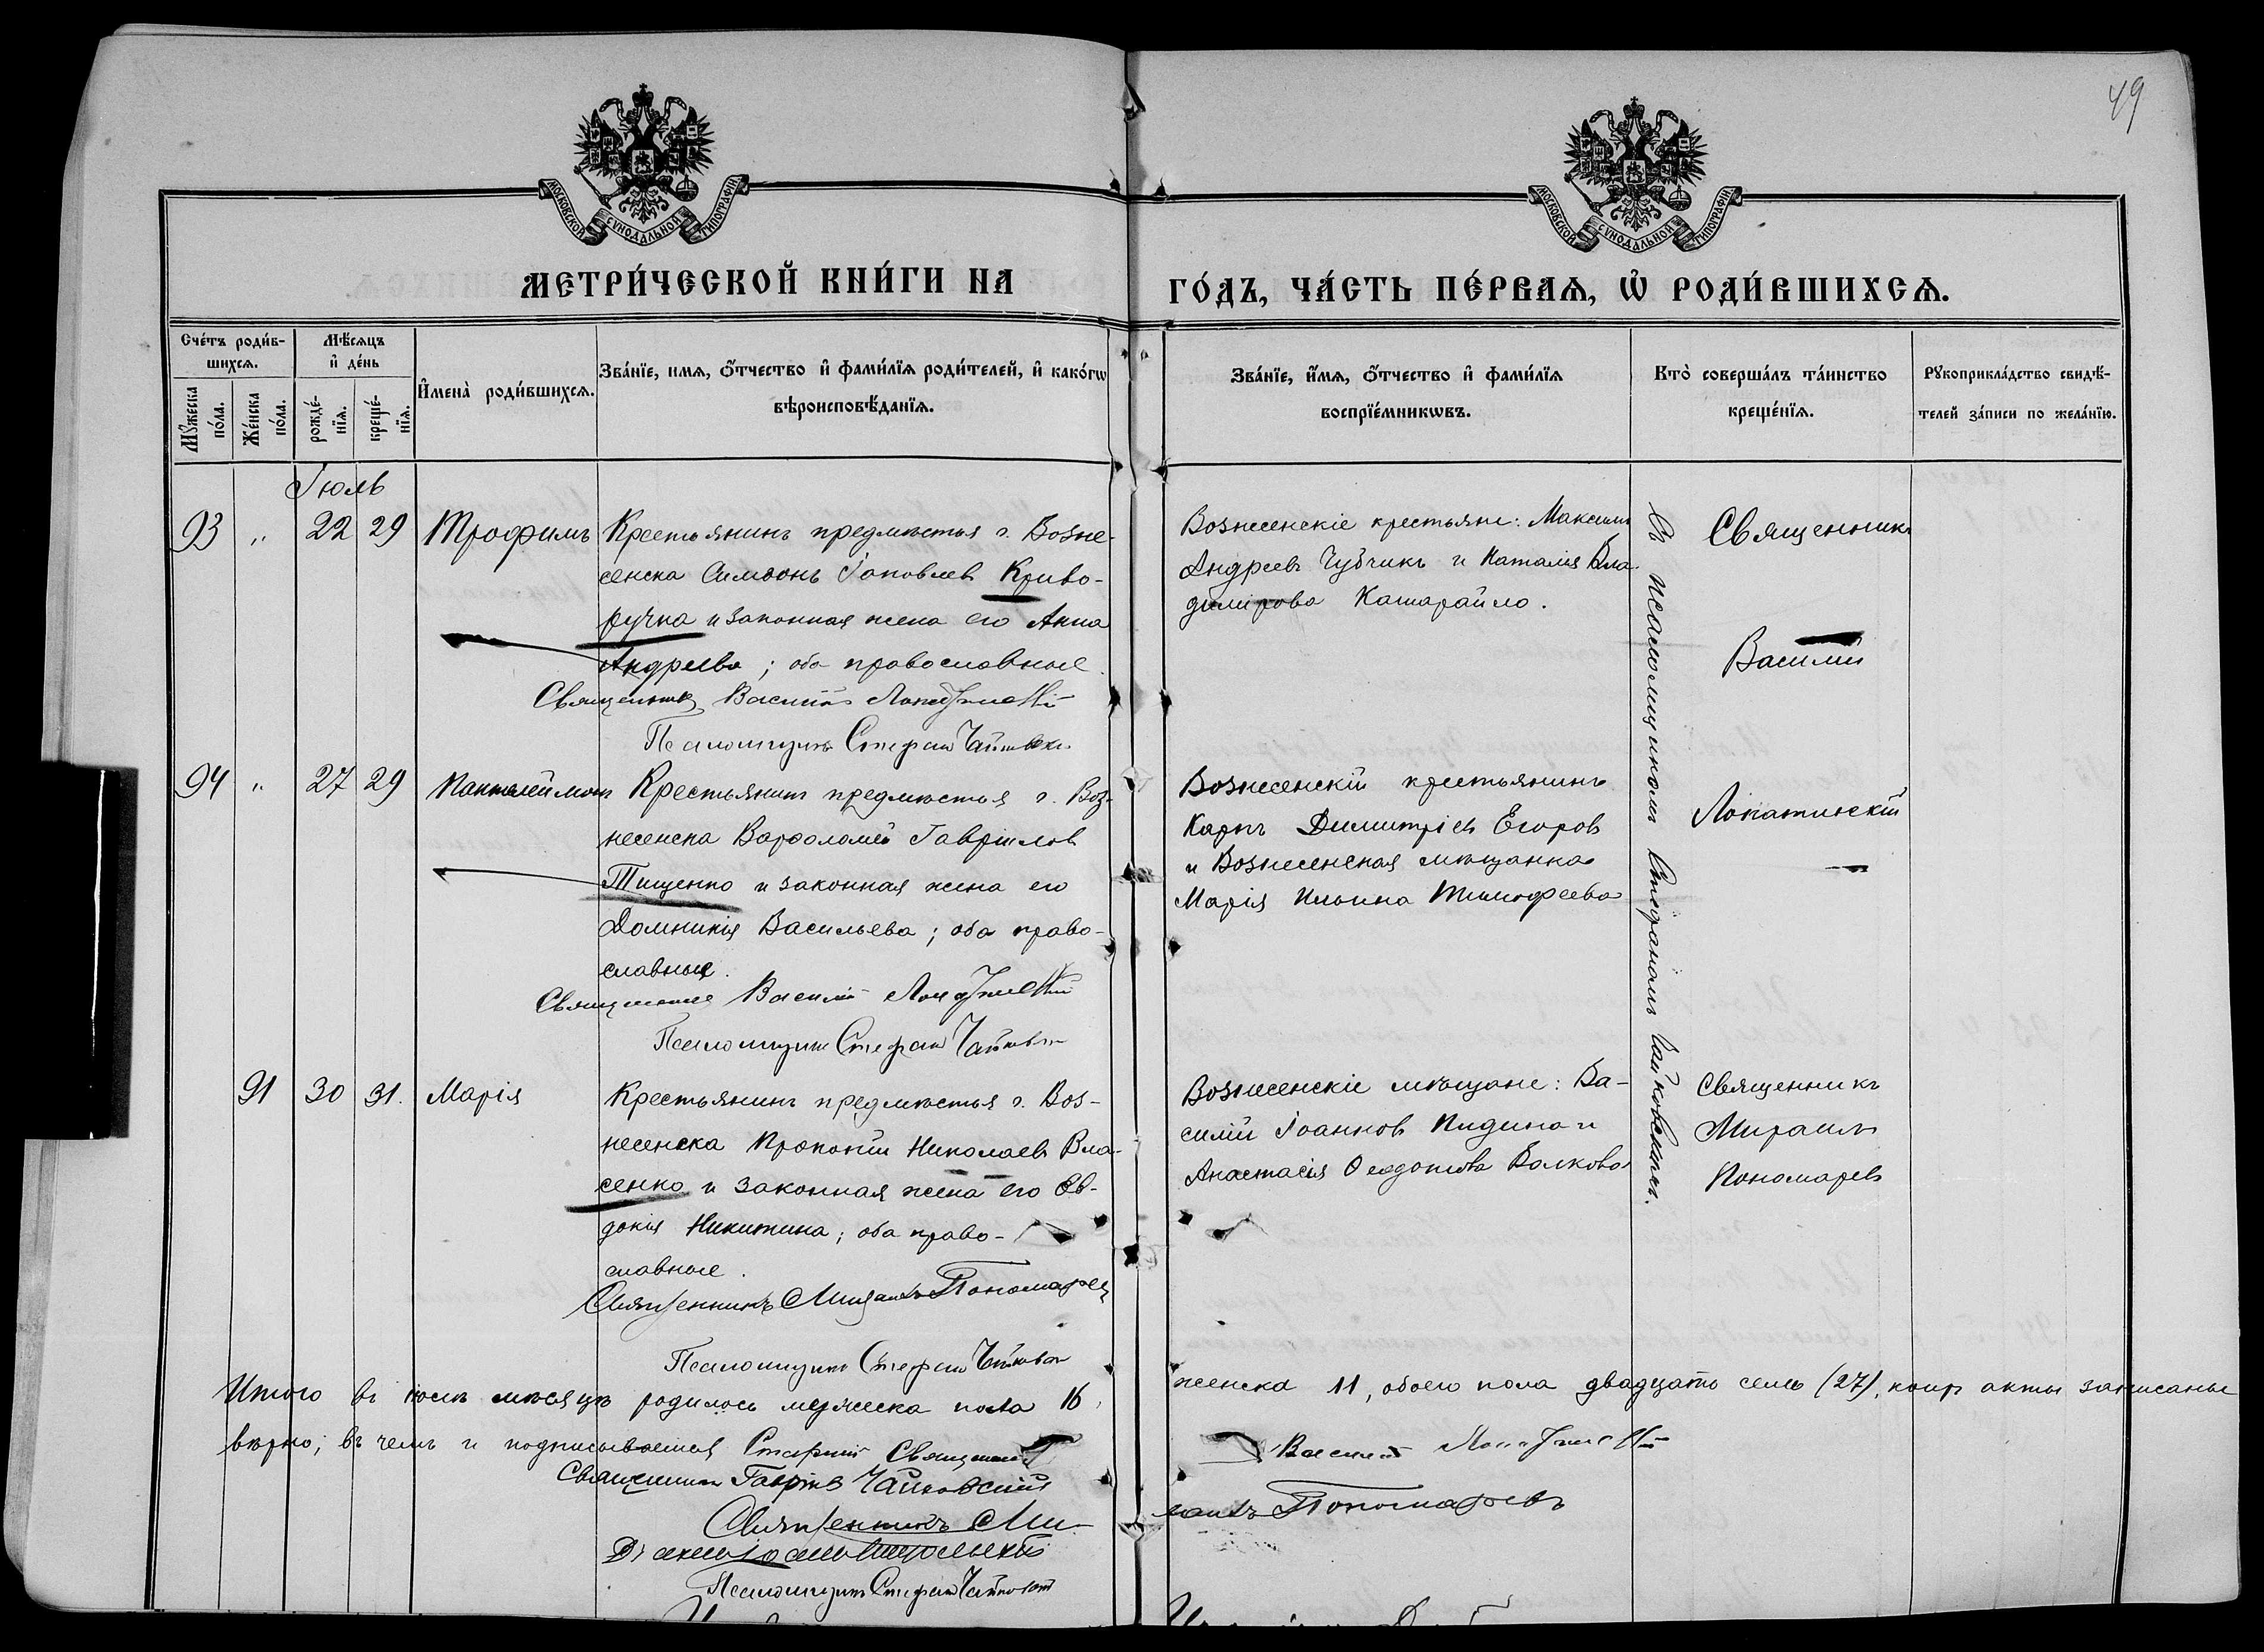 49
МОСКОВСКОЙ СѴНОДАЛЬНОЙ ТИПОГРАФІИ
МОСКОВСКОЙ СѴНОДАЛЬНОЙ ТИПОГРАФІИ
МЕТРИ́ЧЕСКОЙ КНИ́ГИ НА
ГО́ДЪ, ЧА́СТЬ ПЕ́РВАѦ, Ѡ҆ РОДИ́ВШИХСѦ.
Сче́тъ роди́в-
шихсѧ.
Мꙋ́жеска
по́ла.
Же́нска
по́ла.
Мѣ́сѧцъ
и҆ де́нь
рожде́-
нїѧ.
креще́-
нїѧ.
И҆мена̀ роди́вшихсѧ.
Зва́нїе, имѧ, ѻ҆́тчество и҆ фами́лїѧ роди́телей, и҆ како́гѡ
вѣроисповѣ́данїѧ.
Зва́нїе, и҆́мѧ, ѻ҆́тчество и҆ фами́лїѧ
воспрїе́мникѡвъ.
Кто̀ соверша́лъ та́инство
креще́нїѧ.
Рꙋкоприкла́дство свидѣ́-
телей за́писи по жела́нїю.
Іюль
93 „ 22 29 Трофимъ
Крестьянинъ предмѣстья г. Возне-
сенска Симеонъ Іаковлевъ Криво-
ручка и законная жена его Анна
Андреева; оба православные.
Священникъ Василій Лопатинскій
Псаломщикъ Стефанъ Чайковскій
Вознесенскіе крестьяне: Максимъ
Андреевъ Чубчикъ и Наталія Вла-
димірова Кашарайло.
Священникъ
Василій
Лопатинскій
съ псаломщикомъ Стефаномъ Чайковскимъ.
94 „ 27 29 Пантелеймонъ
Крестьянинъ предмѣстья г. Воз-
несенска Варфоломей Гавріиловъ
Тищенко и законная жена его
Домникія Васильева; оба право-
славные.
Священникъ Василій Лопатинскій
Псаломщикъ Стефанъ Чайковскій
Вознесенскій крестьянинъ
Карпъ Димитріевъ Егоровъ
и Вознесенская мѣщанка
Марія Ильина Тимофеева
91 30 31. Марія
Крестьянинъ предмѣстья г. Воз-
несенска Прокопій Николаевъ Вла-
сенко и законная жена его Ев-
докія Никитина; оба право-
славные.
Священникъ Михаилъ Пономаревъ
Псаломщикъ Стефанъ Чайковскій
Вознесенскіе мѣщане: Ва-
силій Іоанновъ Пидина и
Анастасія Феодотова Волкова
Священникъ
Михаилъ
Пономаревъ
Итого въ іюлѣ мѣсяцѣ родилось мужеска пола 16, женска 11, обоего пола двадцать семь (27), коихъ акты записаны
вѣрно; въ чемъ и подписываемся Старшій Священникъ Василій Лопатинскій
Священникъ Гавріилъ Чайковскій
Священникъ Михаилъ Пономаревъ
Псаломщикъ Стефанъ Чайковскій